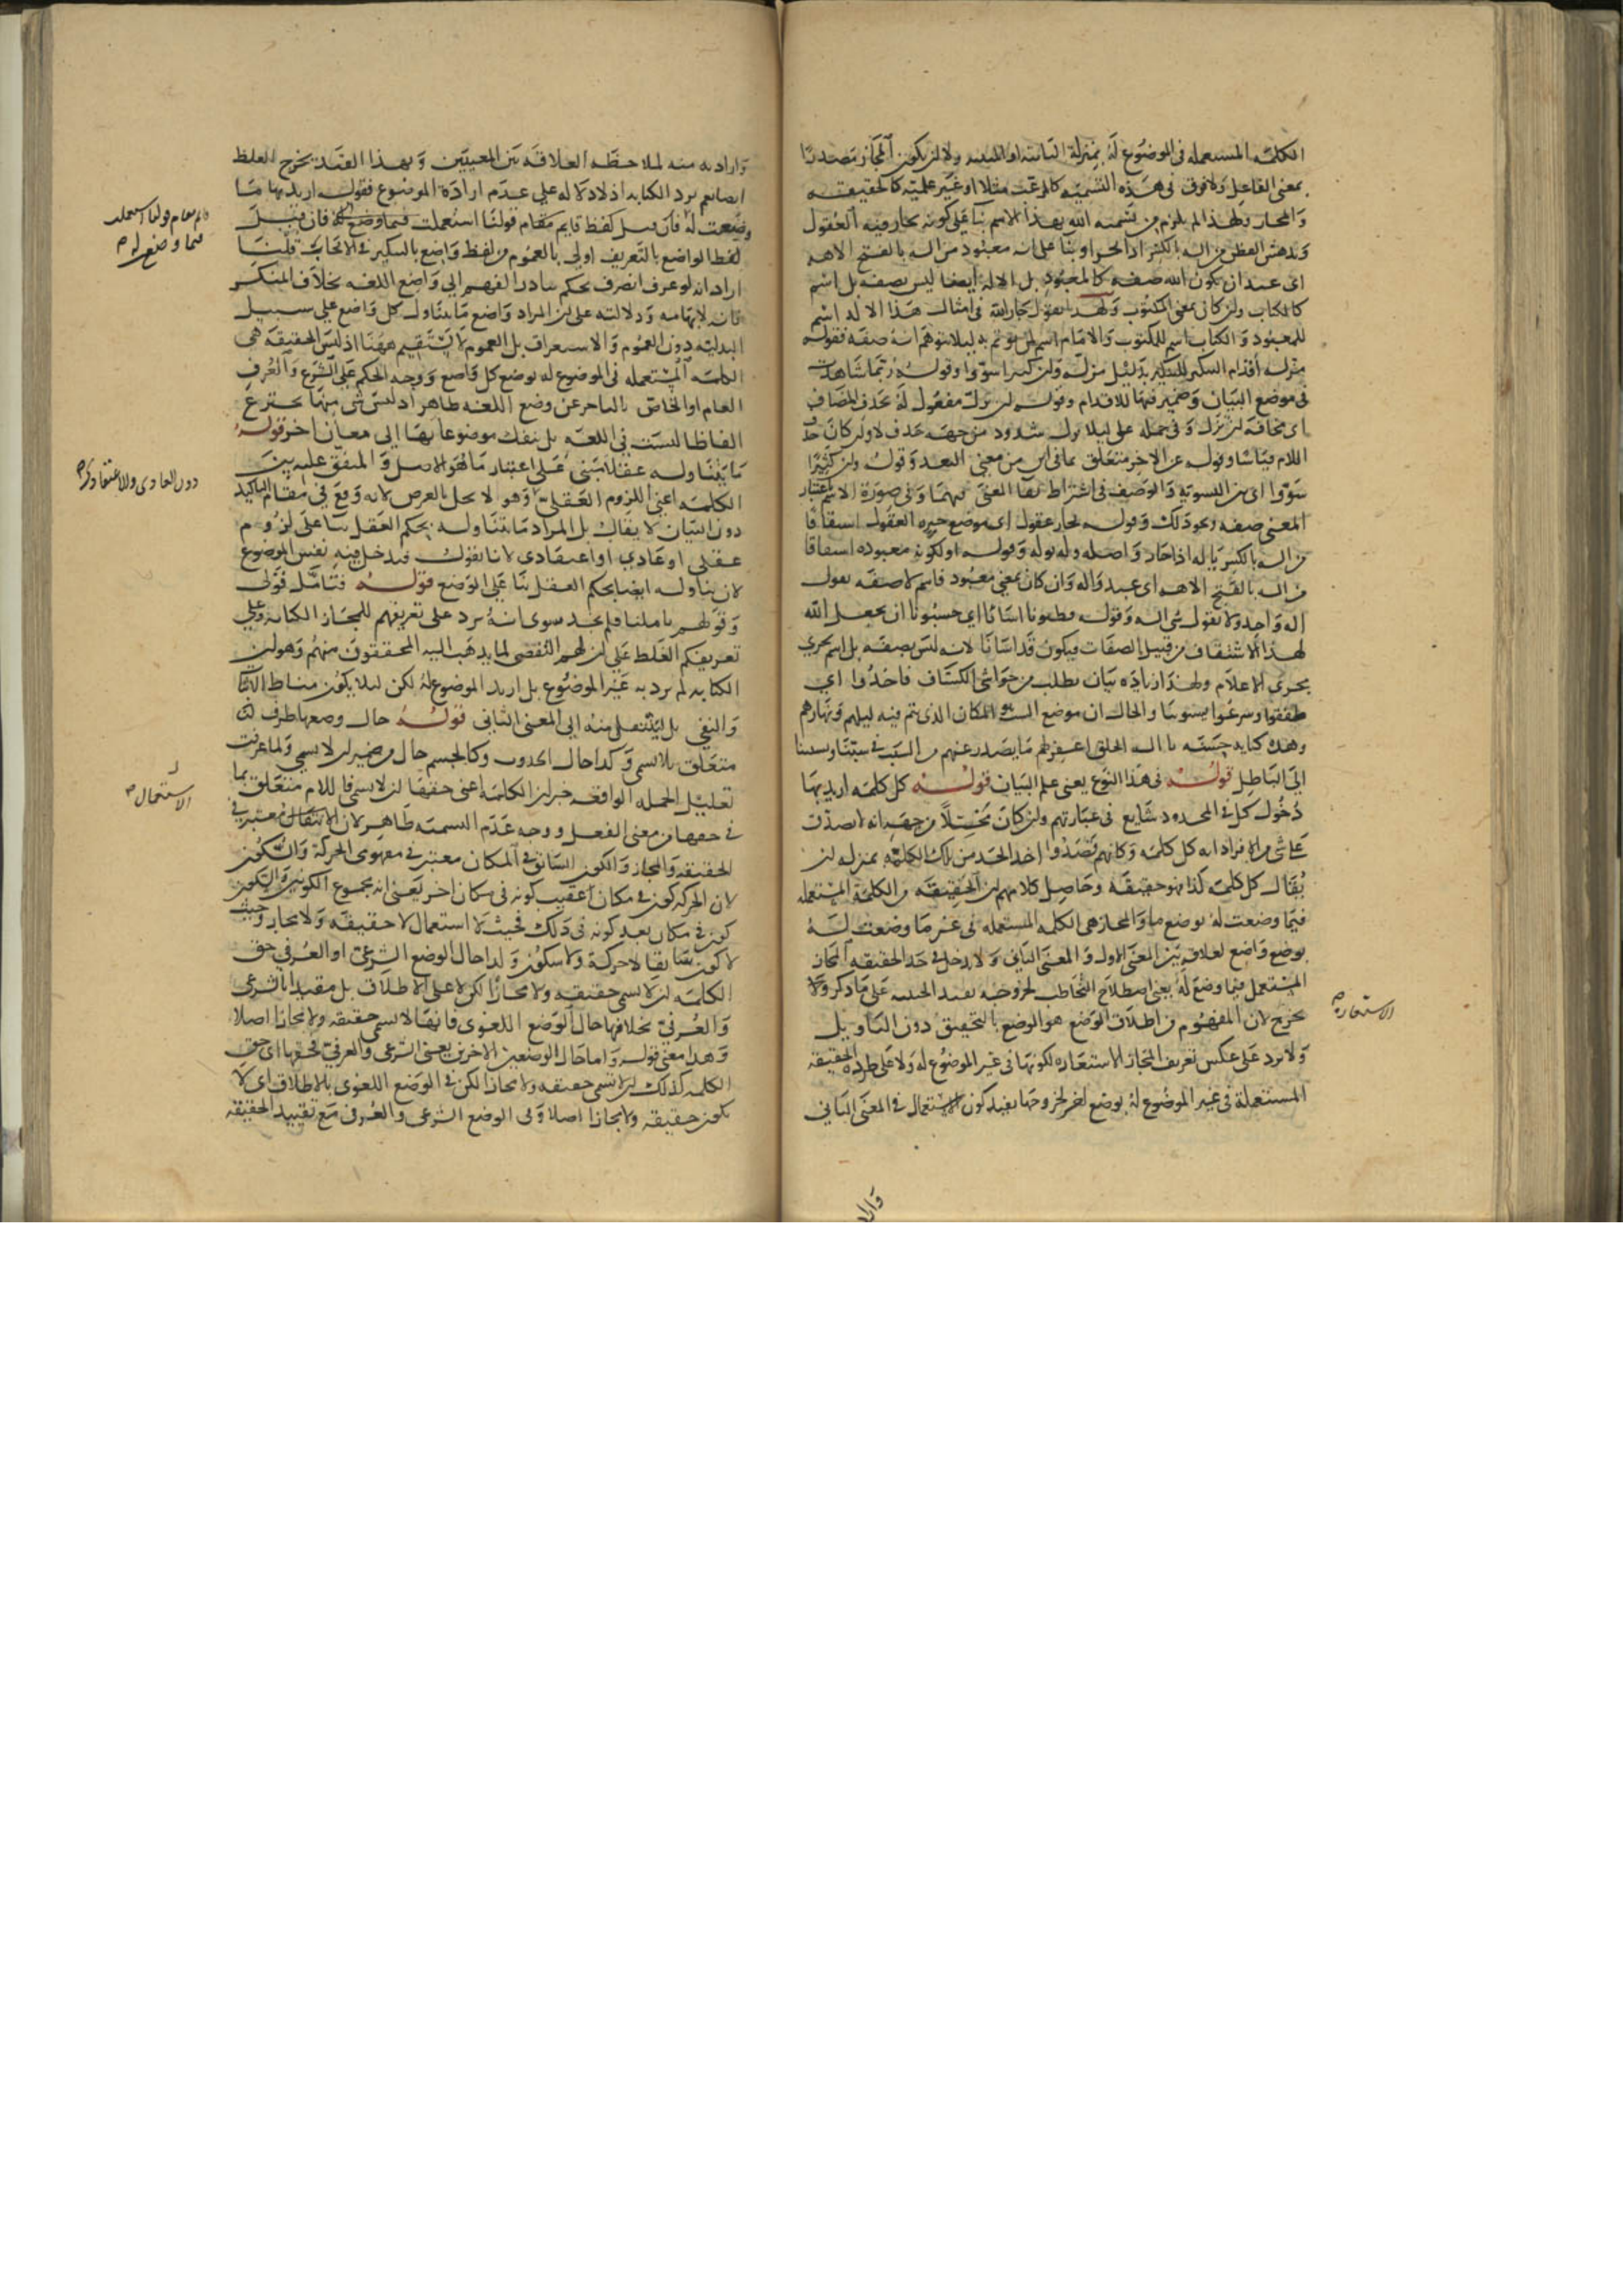 الكلمة المستعملة في الموضوع له بمنزلة الثابتة او المثبتة ولان يكون المجاز مصدرا
بمعنى الفاعل ولا فرق في هذه التسمية كالمرعت مثلا او غير علمية كالحقيقة
والمجاز ولهذا لم يلزم من تسمية الله بهذا الاسم بناء على كونه يحار فيه العقول
وتدهش الفطن من اله بالكسر اذا تحير او بناء على انه معبود من اله بالفتح الاهة
اى عبد ان يكون الله صفة كالمعبود بل الاله ايضا ليس بصفة بل اسم
كالكتاب وان كان بمعنى المكتوب ولهذا يقول جار الله في امثال هذا الاله اسم
للمعبود والكتاب اسم للمكتوب والامام اسم لمن يوتم به ليلا يتوهم انه صفة فقوله
مزلة أقدام التنكير للتكثير بدليل مزلة وان كسرا سووا وقوله ربما شاهدت
في موضع البيان وضمير فيها للاقدام وقوله ان تزل مفعول له بحذف المضاف
اى مخافة ان تزل وفي حمله على ليلا تزل شدود من جهة حذف لا وان كان حذف
اللام قياسا وقوله عن الاخر متعلق بما في اين من معنى البعد وقوله وان كثيرا
سووا اى من التسوية والوصف في اشتراط بقاء المعنى فيهما وفي صورة الاسم باعتبار
المعنى صفة ونحو ذلك وقوله تحار عقول اى موضع حيرة العقول اشتقاقا
من اله بالكسر ياله اذا حار واصله وله يوله وقوله او لكونه معبودا اشتقاقا
من اله بالفتح الاهة اى عبد واله وان كان بمعنى معبود فاسم لا صفة يقول
اله واحد ولا يقول شى اله وقوله مظنونا اسانا اى حسبونا ان يجعل الله
لهذا الاشتقاق من قبيل الصفات فيكون قد اسانا لانه ليس بصفة بل اسم يجري
مجرى الاعلام ولهذا زيادة بيان يطلب من حواشى الكشاف فاخذوا اى
طفقوا وشرعوا يسبوننا والحال ان موضع السب هو المكان الذي تم فيه ليلهم ونهارهم
وهذه كناية حسنة يا اله الخلق اغفر لهم ما يصدر عنهم من السب في سبنا ونسبتنا
الى الباطل قوله في هذا النوع يعنى علم البيان قوله كل كلمة اريد بها
دخول كل في المحدود شايع في عبارتهم وان كان مختلا من جهة انه لا يصدق
على شى من الافراد انه كل كلمة وكانهم قصدوا اخذ الحد من تلك الكلية بمنزلة ان
يقال كل كلمة كذا فهو حقيقة وحاصل كلامهم ان الحقيقة هي الكلمة المستعملة
فيما وضعت له بوضع ما والمجاز هي الكلمة المستعملة في غير ما وضعت له
بوضع واضع لعلاقة بين المعنى الاول والمعنى الثاني ولا يدخل في حد الحقيقة المجاز
المستعمل فيما وضع له يعنى اصطلاح التخاطب لخروجه بقيد الحيثية على ما ذكر ولا
يخرج لان المفهوم من اطلاق الوضع هو الوضع بالتحقيق دون التاويل
ولا يرد على عكس تعريف المجاز الاستعارة لكونها في غير الموضوع له ولا على طرده الحقيقة
المستعملة في غير الموضوع له بوضع اخر لخروجها بقيد كون الاستعمال في المعنى الثاني
الاستعارة
واراد
واراد به منه لملاحظة العلاقة بين المعنيين وبهذا القيد يخرج الغلط
ايضا نعم يرد الكناية اذ لا دلالة له على عدم ارادة الموضوع فقوله اريد بها ما
وضعت له فان قيل لفظ قايم مقام قولنا استعملت فيما وضع له فان قيل
لفظ الواضع بالتعريف اولى بالعموم من لفظ واضع بالتنكير في الاثبات قلنا
اراد انه لو عرف انصرف بحكم تبادر الفهم الى واضع اللغة بخلاف المنكر
فانه لابهامه ودلالته على ان المراد واضع ما يتناول كل واضع على سبيل
البدلية دون العموم والاستغراق بل العموم لا يستقيم ههنا اذ ليس الحقيقة هى
الكلمة المستعملة في الموضوع له بوضع كل واضع ووجه الحكم على الشرع والعرف
العام او الخاص بالتاخر عن وضع اللغة ظاهر اذ ليس شى منها يخترع
الفاظا ليست في اللغة بل ينقل موضوعاتها الى معان اخر قوله
ما يتناوله عقلا مبنى على اعتبار ما هو الاصل والمتفق عليه بين
الكلمة اعنى اللزوم العقلى وهو لا يخل بالغرض لانه وقع في مقام التاكيد
دون البيان لا يقال بل المراد ما يتناوله بحكم العقل بناء على لزوم
عقلى او عادي او اعتقادى لانا نقول فيدخل فيه نفس الموضوع
لان تناوله ايضا بحكم العقل بناء على الوضع قوله فتامل قولى
وقولهم تاملنا فلم نجد سوى انه يرد على تعريفهم للمجاز الكناية وعلى
تعريفكم الغلط على ان لهم التفصى لما يذهب اليه المحققون منهم وهو ان
الكناية لم يرد به غير الموضوع بل اريد الموضوع له لكن ليلا يكون مناط الاثبات
والنفي بل لينتقل منه الى المعنى الثاني قوله حال وضعها ظرف لغو
متعلق بلا تسمى وكذا حال الحدوث وكالجسم حال من ضمير ان لا يسمى ولما عرفت
تعليل الجملة الواقعة خبر ان الكلمة اعنى حقها ان لا تسمى فاللام متعلق بما
في حقها من معنى الفعل ووجه عدم التسمية ظاهر لان الانتقال معتبر في
الحقيقة والمجاز والكون السابق في المكان معتبر في مفهومى الحركة والسكون
لان الحركة كون في مكان عقيب كونه في مكان اخر يعنى انه مجموع الكونين والسكون
كون في مكان بعد كونه في ذلك فحيث لا استعمال لا حقيقة ولا مجاز وحيث
لا كون سابقا لا حركة ولا سكون وكذا حال الوضع الشرعى او العرفى حق
الكلمة ان لا تسمى حقيقة ولا مجازا لكن لا على الاطلاق بل مقيدا بالشرعى
والعرفى بخلافها حال الوضع اللغوى فانها لا تسمى حقيقة ولا مجازا اصلا
وهذا معنى قوله واما حال الوضعين الاخرين يعنى الشرعى والعرفى فحقها اى حق
الكلمة كذلك ان لا تسمى حقيقة ولا مجازا لكن في الوضع اللغوى بالاطلاق اى لا
يكون حقيقة ولا مجازا اصلا وفى الوضع الشرعى والعرفى مع تقييد الحقيقة
قايم مقام قولنا استعملت
فيما وضع له
دون العادى والاعتقادى
الاستعمال